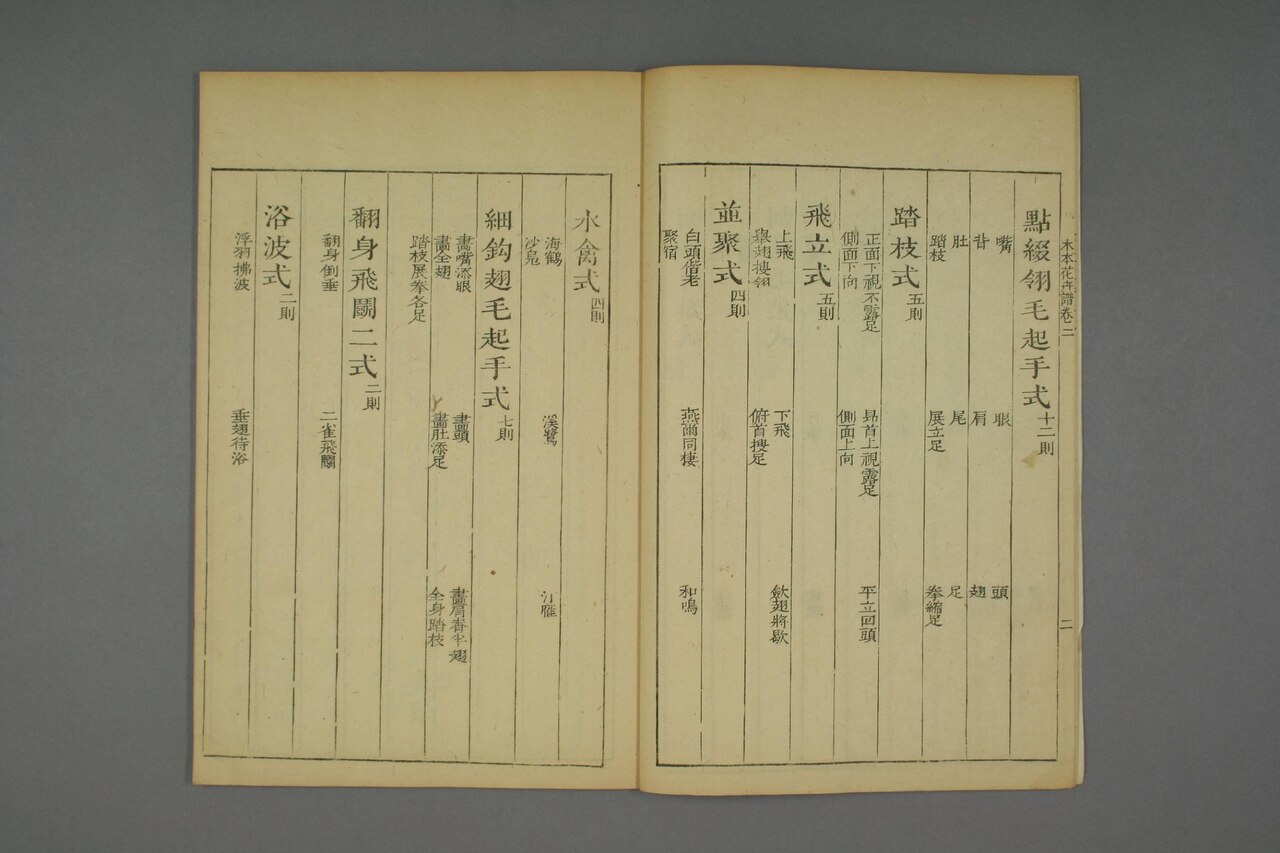 木本花卉譜卷之二
二
點綴翎毛起手式十二則
嘴 眼 頭
背 肩 翅
肚 尾 足
踏枝 展立足 拳縮足
踏枝式五則
正面下視不露足 昻首上視露足 平立回頭
側面下向 側面上向
飛立式五則
上飛 下飛 斂翅將歇
舉翅摟翎 俯首搜足
並聚式四則
白頭偕老 燕爾同棲 和鳴
聚宿
水禽式四則
海鶴 溪鷺 江雁
沙鳧
細鈎翅毛起手式七則
畫嘴添眼 畫頭 畫肩脊半翅
畫全翅 畫肚添足 全身踏枝
踏枝展拳各足
翻身飛鬭二式二則
翻身倒垂 二雀飛鬭
浴波式二則
浮羽拂波 垂翅待浴